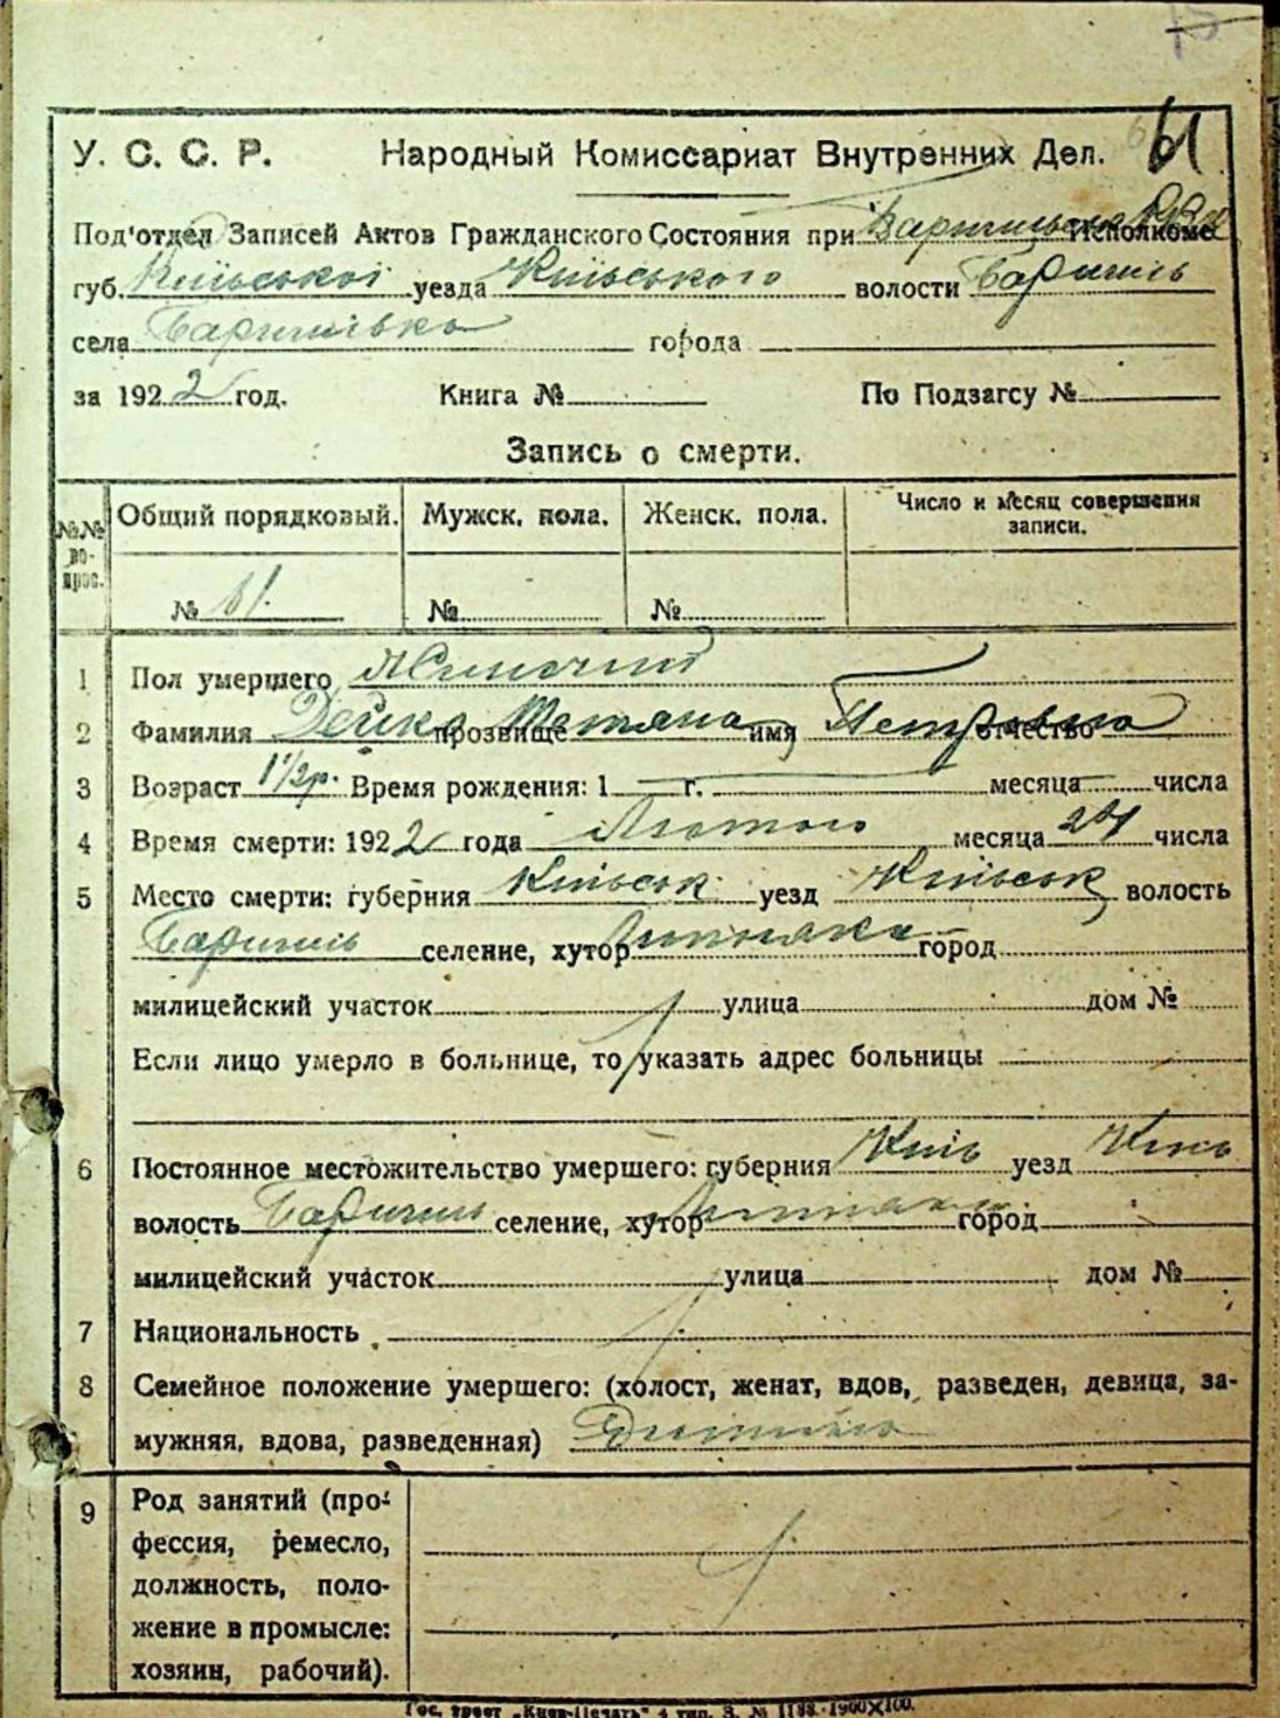 61
У. С. С. Р. Народный Комиссариат Внутренних Дел.
Под'отдел Записей Актов Гражданского Состояния при Исполкоме
губ. Київської уезда Київського волости Баришль
села Баришівка города
за 1922 год. Книга № По Подзагсу №
Запись о смерти.
№№ вопрос. Общий порядковый. Мужск. пола. Женск. пола. Число и месяц совершения записи.
№ 61. № №
1 Пол умершего Жиночий
2 Фамилия Дейко прозвище Тетяна имя Петровна отчество
3 Возраст 1½р. Время рождения: 1 г. месяца числа
4 Время смерти: 1922 года Лютого месяца 24 числа
5 Место смерти: губерния Київськ уезд Київськ волость
Баришль селение, хутор город
милицейский участок улица дом №
Если лицо умерло в больнице, то указать адрес больницы
6 Постоянное местожительство умершего: губерния Київ уезд Київ
волость Баришль селение, хутор город
милицейский участок улица дом №
7 Национальность
8 Семейное положение умершего: (холост, женат, вдов, разведен, девица, за-
мужняя, вдова, разведенная)
9 Род занятий (про-
фессия, ремесло,
должность, поло-
жение в промысле:
хозяин, рабочий).
Гос. трест „Киев-Печать" 4 тип. З. № 1188.-1900Х100.